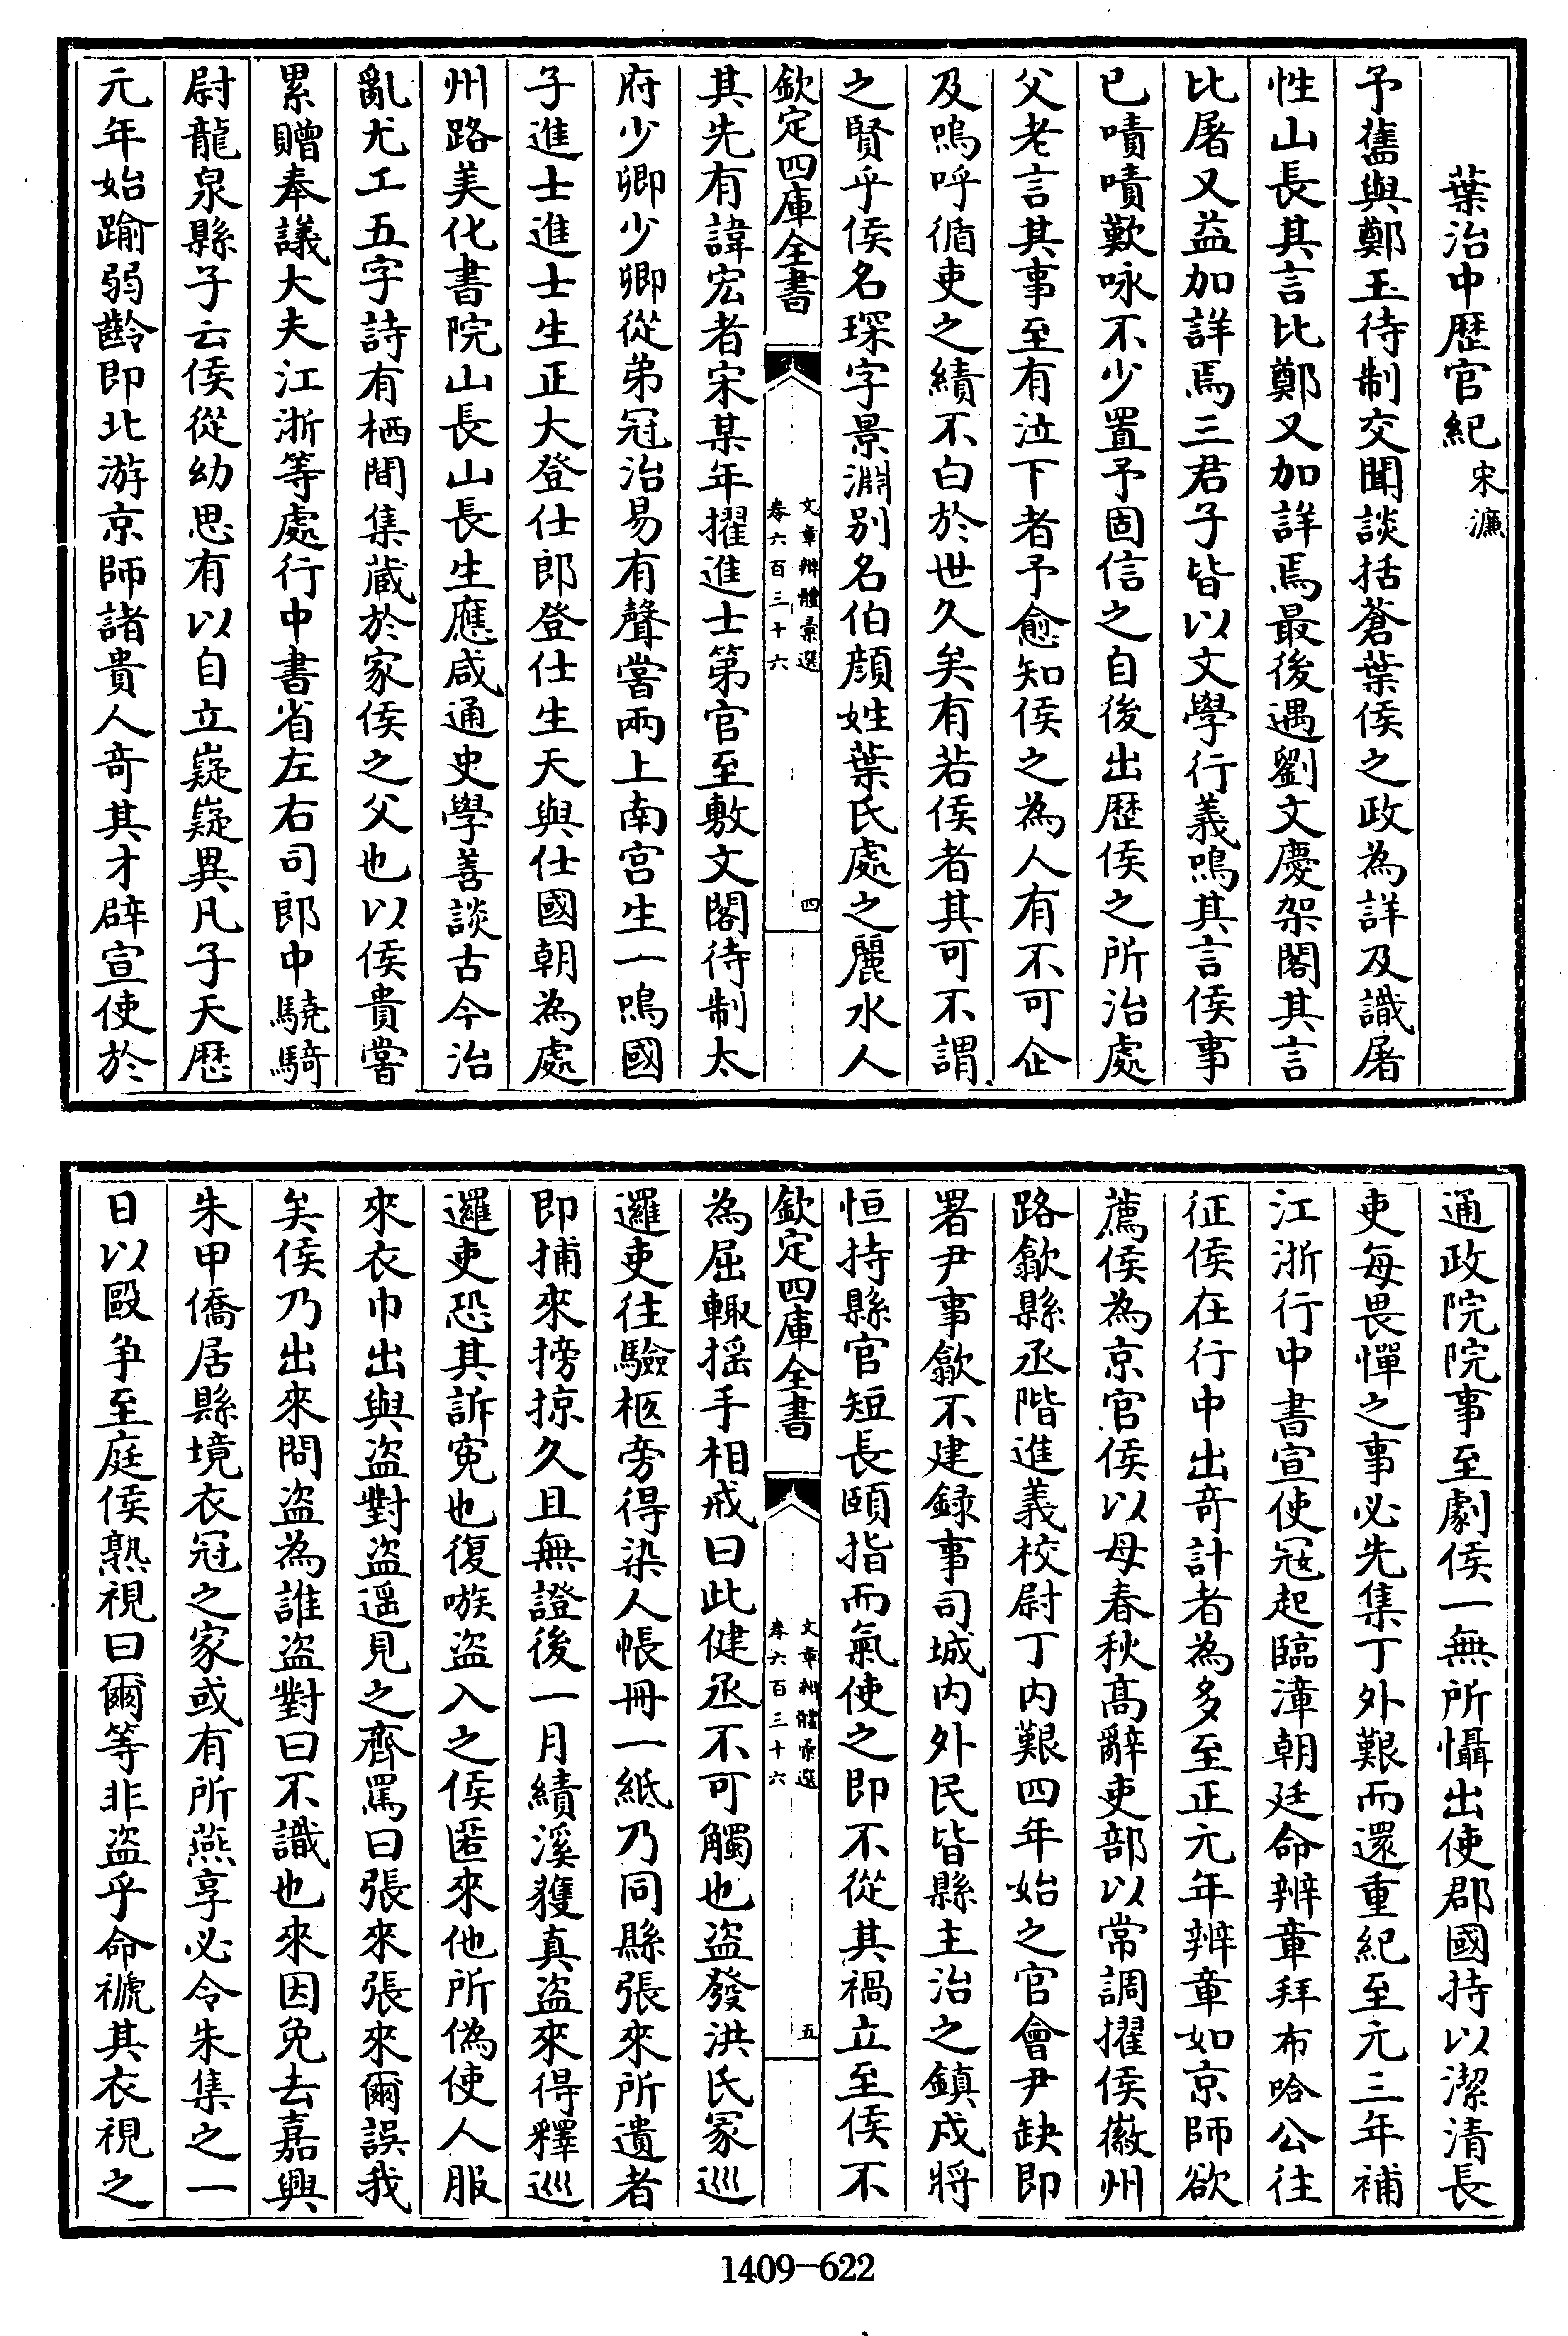 葉治中歷官紀 宋濂
予舊與鄭玉待制交聞談括蒼葉侯之政為詳及識屠
性山長其言比鄭又加詳焉最後遇劉文慶架閣其言
比屠又益加詳焉三君子皆以文學行義鳴其言侯事
已嘖嘖歎咏不少置予固信之自後出歷侯之所治處
父老言其事至有泣下者予愈知侯之為人有不可企
及嗚呼循吏之績不白於世久矣有若侯者其可不謂
之賢乎侯名琛字景淵别名伯顔姓葉氏處之麗水人
欽定四庫全書
文章辨體彙選
卷六百三十六
四
其先有諱宏者宋某年擢進士第官至敷文閣待制太
府少卿少卿從弟冠治易有聲嘗兩上南宫生一鳴國
子進士進士生正大登仕郎登仕生天與仕國朝為處
州路美化書院山長山長生應咸通史學善談古今治
亂尤工五字詩有栖閒集蔵於家侯之父也以侯貴嘗
累贈奉議大夫江浙等處行中書省左右司郎中驍騎
尉龍泉縣子云侯從幼思有以自立嶷嶷異凡子天歷
元年始踰弱齡即北游京師諸貴人竒其才辟宣使於
通政院院事至劇侯一無所懾出使郡國持以潔清長
吏每畏憚之事必先集丁外艱而還重紀至元三年補
江浙行中書宣使寇起臨漳朝廷命辨章拜布哈公往
征侯在行中出竒計者為多至正元年辨章如京師欲
薦侯為京官侯以母春秋髙辭吏部以常調擢侯徽州
路歙縣丞階進義校尉丁内艱四年始之官會尹缺即
署尹事歙不建録事司城内外民皆縣主治之鎮戍將
恒持縣官短長頤指而氣使之即不從其禍立至侯不
欽定四庫全書
文章辨體彙選
卷六百三十六
五
為屈輙揺手相戒曰此健丞不可觸也盗發洪氏冢巡
邏吏往驗柩旁得染人帳冊一紙乃同縣張來所遺者
即捕來搒掠久且無證後一月績溪獲真盗來得釋巡
邏吏恐其訴寃也復嗾盗入之侯匿來他所偽使人服
來衣巾出與盗對盗遥見之齊罵曰張來張來爾誤我
矣侯乃出來問盗為誰盗對曰不識也來因免去嘉興
朱甲僑居縣境衣冠之家或有所燕享必令朱集之一
日以毆争至庭侯熟視曰爾等非盗乎命褫其衣視之
1409-622